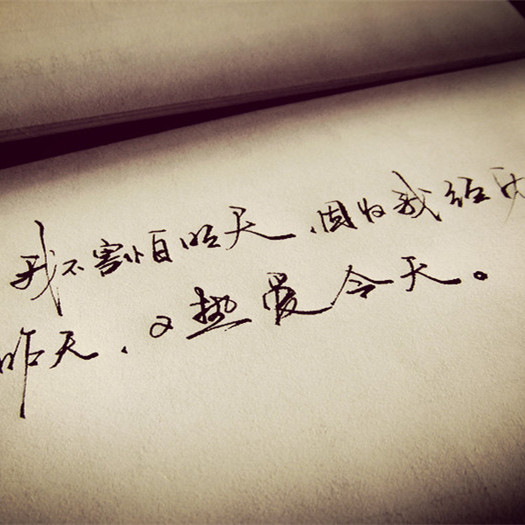 我不害怕明天，因为我经历
昨天，又热爱今天。